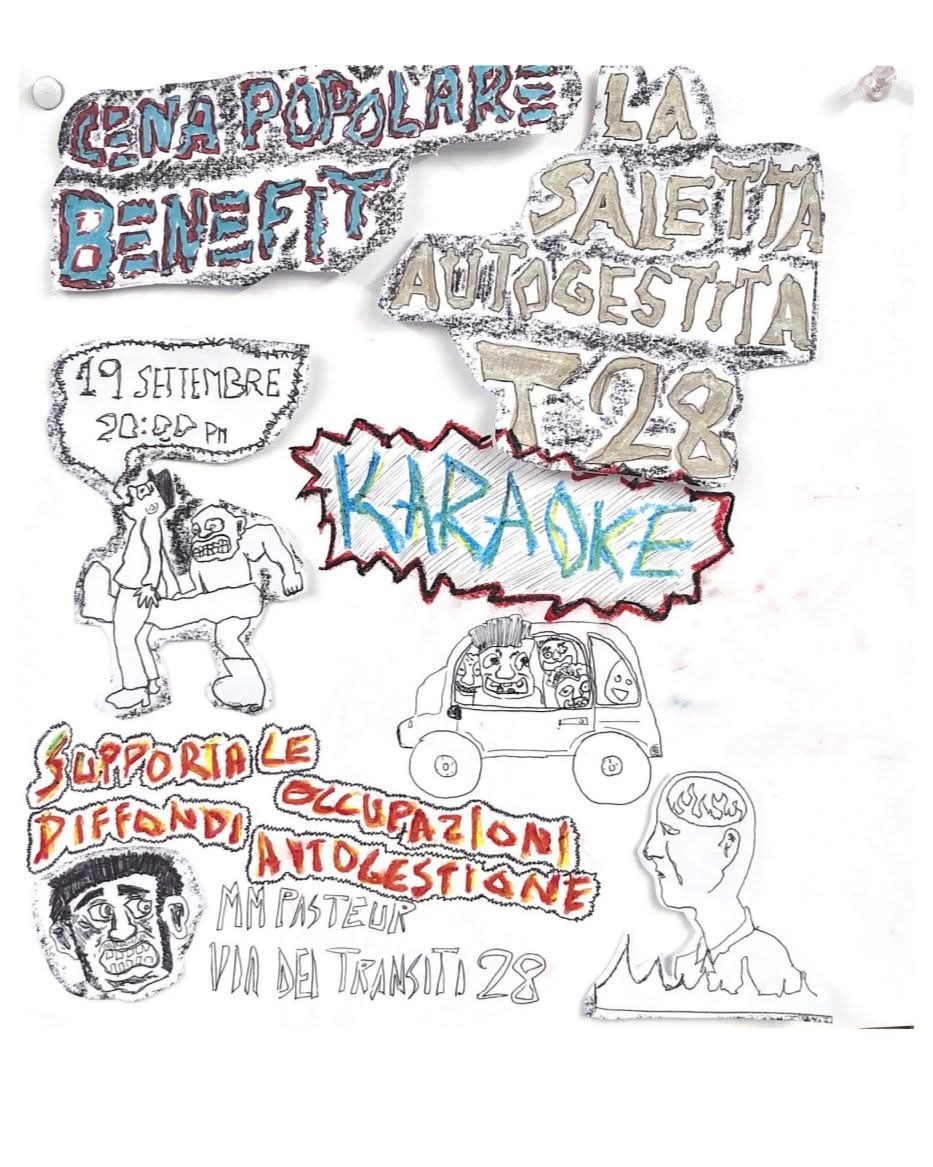 CENA POPOLARE
BENEFIT
LA
SALETTA
AUTOGESTITA
T28
19 SETTEMBRE
20:00 PM
KARAOKE
SUPPORTA LE
OCCUPAZIONI
DIFFONDI
AUTOGESTIONE
MM PASTEUR
VIA DEI TRANSITI 28